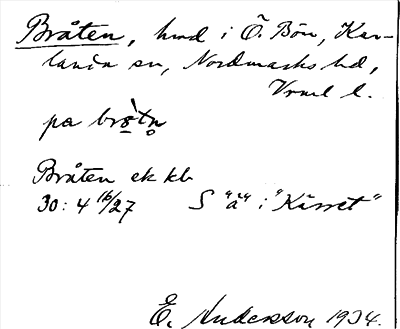 Bråten, hmd i Ö. Bön, Kar-
landa sn, Nordmarks hd,
Vrml l.
på brò̱tn̥
Bråten ek kb
30: 4 16/27 S "å" i "Kärret"
E. Andersson 1934.